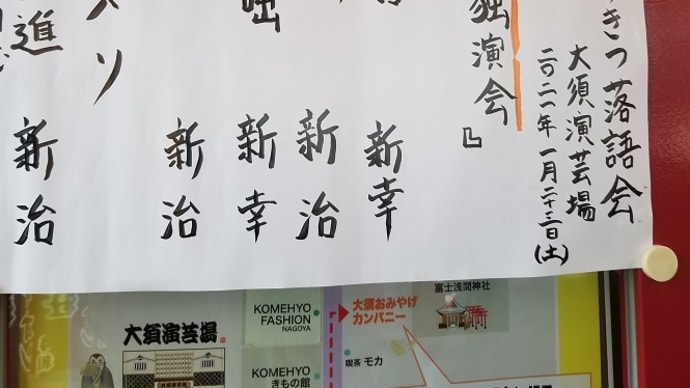 きつ落語会
大須演芸場
二〇二一年 一月二十三日(土)
独演会』
新幸
新治
新幸
新治
ハソ
進
新治
大須演芸場
KOMEHYO
FASHION
NAGOYA
KOMEHYO
きもの館
大須おみやげ
カンパニー
富士浅間神社
喫茶 モカ